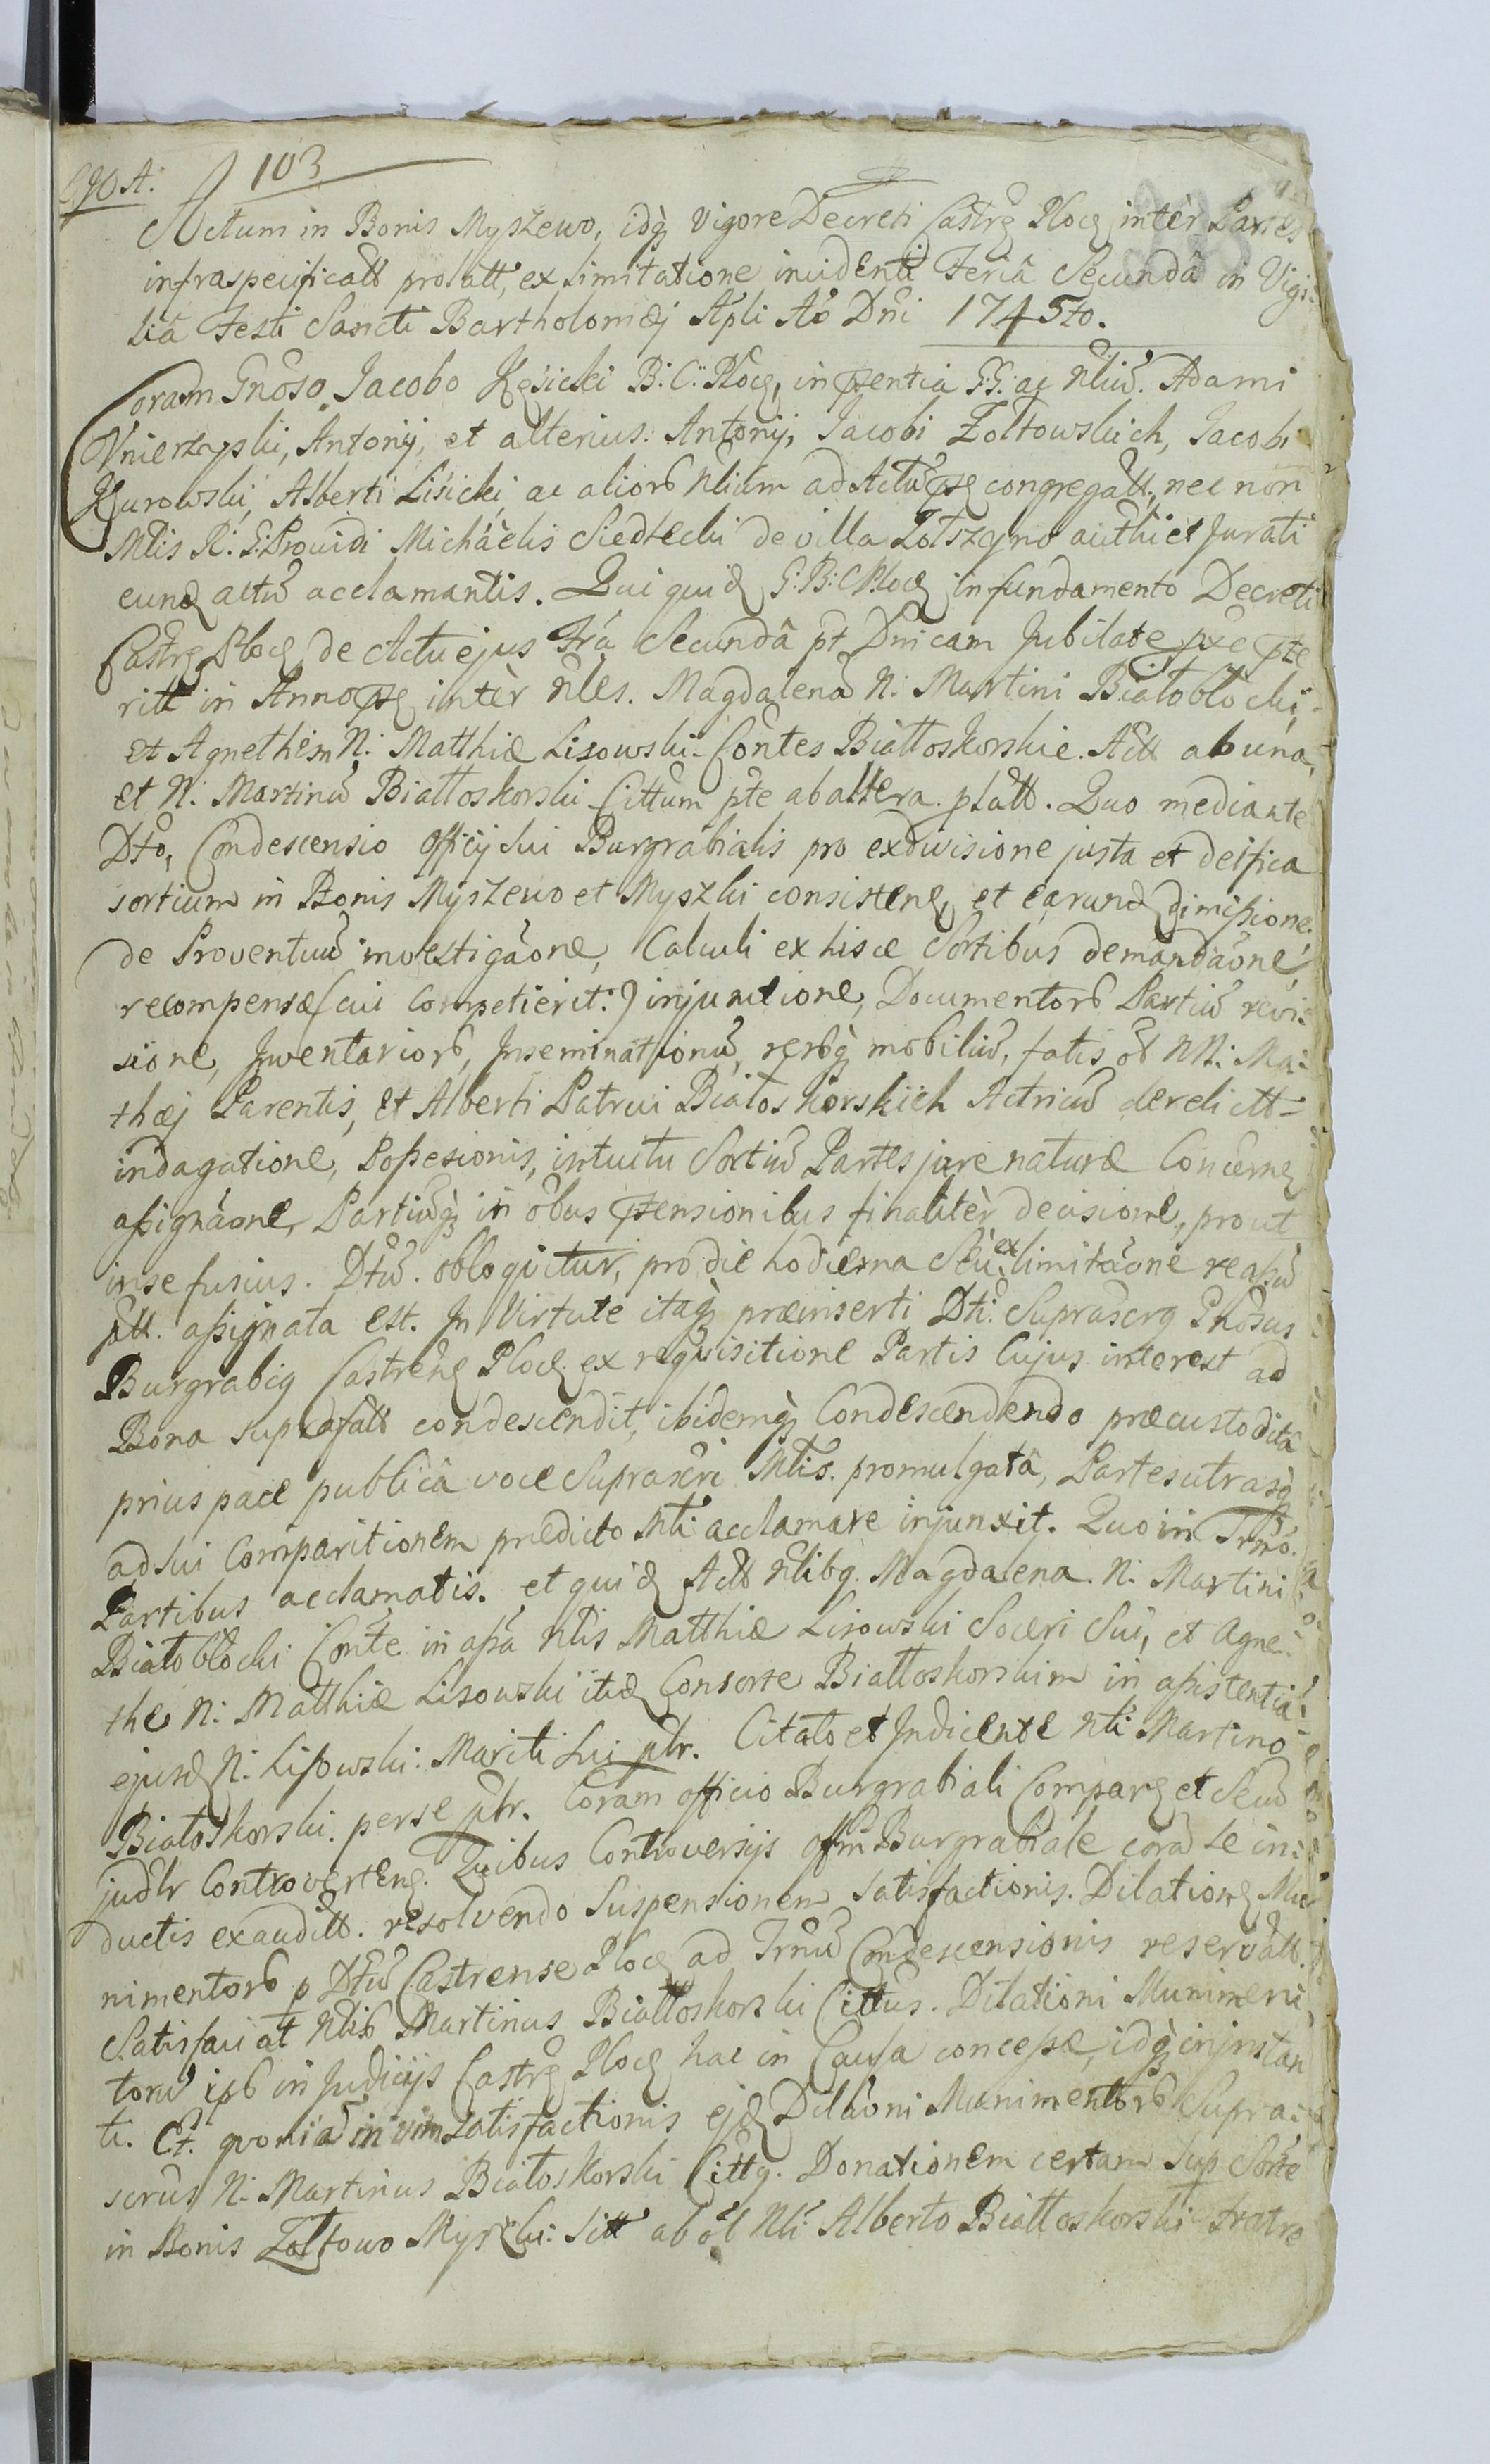 690 A. 103
Actum in Bonis Myszewo, idq̃ vigore Decreti Castrẽ Ploc̃ intèr Partes
infraspecificatt prolatt, ex limitatione incidenti Feriâ Secundâ in Vigi-
liâ Festi Sancti Bartholomæj Apli Aõ Dni 1745to.
Coram Gnõso Jacobo Kęsicki B: C: Ploc̃, in pñtentia G:G: ac Nliũ. Adami
Unierzyski, Antonij, et alterius: Antonij, Jacobi Zołtowskich, Jacobi
Kurowski, Alberti Lisicki, ac aliorũ Nlium ad Actũ pñs congregatt, nec non
Mlis R: G: Providi Michaèlis Siedlecki de villa auth: et Jurati
eund̃ actũ acclamantis. Qui quid̃ G: B: C Ploc̃ in fundamento Decreti
Castrẽ Ploc̃ de Actu ejus Fr̃a Secundâ pt Dnicam Jubilate pxe pte
ritt in Anno pñ intèr Nles. Magdalenã N: Martini Białobłocki,
et Agnethem N: Matthiæ Lisowski Con̄tes Białłoskorskie. Actt ab una,
et N: Martinũ Białłoskorski Cittum pte ab altera platt. Quo mediante
Dto, Condescensio officij sui Burgrabialis pro exdivisione justa et deifica
sortium in Bonis Myszewo et Myszki consisteñ, et earund̃ dimissione
de Proventuũ investigãone, Calculi ex hisce Sortibus demandãone,
recompensæ (cui competierit:) injunctione, Documentorũ Partiũ revi-
sione, Inventariorũ, Inseminationũ, rerũq̃ mobiliũ, fatis õl NN: Ma-
thæj Parentis, et Alberti Patrui Białoskorskich Actricũ derelictt
indagatione, Possesionis, intuitu Sortiũ Partes jure naturæ Concerneñ
assignãone, Partiũq̃ in õbus ptensionibus finalitèr decisione, prout
in se fusius. Dtũ. obloqitur, pro die hodierna Seu ex limitãone reassũ
ptt. assignata est. In Virtute itaq̃ præinserti Dti. Suprascrꝗ Gnõsus
Burgrabiꝗ Castreñ Ploc̃ ex reqvisitione Partis Cujus interest ad
Bona suprafatt condescendit, ibidemq̃ Condescendendo præcustoditâ
prius pace publicâ voce Suprascri Mlis. promulgatâ, Partes utrasq̃
ad sui Comparitionem prædicto Mli acclamare injunxit. Quo in Trno.
Partibus acclamatis. et quid̃ Actt Nlibꝗ. Magdalena. N: Martini
Białobłocki Con̄te in assa Nlis Matthiæ Lisowski Soceri Sui, et Agne-
the N: Matthiæ Lisowski itid̃ Consorte Białłoskorskim in assistentia
ejusd̃ N: Lissowski: Mariti Sui pltr. Citato et Indicente Nli Martino
Białoskorski. per se pltr. Coram officio Burgrabiali Compar̃ et Seuũ
judlr Controverteñ. Quibus Controversijs offm Burgrabiale corã se in-
ductis exauditt. resolvendo Suspensionem satisfactionis. Dilationẽ Mu-
nimentorũ p Dtũ Castrense Ploc̃ ad Trnũ Condescensionis reservatt.
Satisfaciat Nlis Martinus Białłoskorski Cittus. Dilationi Munimen-
torũ ipũ in Judicijs Castrẽ Ploc̃ hac in Causa concessæ, idq̃ in instan
ti. Et. qvoniã in vim satisfactionis ejd̃ Dilãoni Munimentorũ Supra-
scrus N: Martinus Białoskorski Cittꝗ. Donationem certam sup Sorte
in Bonis Zołtowo Myszki: Sitt ab õl Nli Alberto Białłoskorski fratre